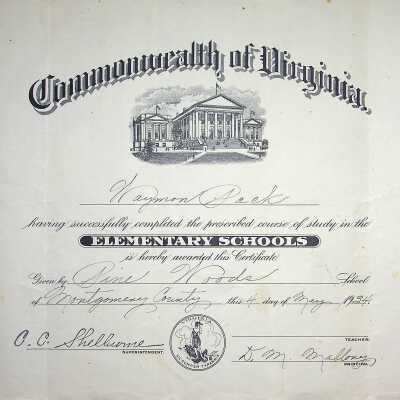 Commonwealth of Virginia,
Waymon Pack
having successfully completed the prescribed course of study in the
ELEMENTARY SCHOOLS
is hereby awarded this Certificate
Given by Pine Woods School
of Montgomery County this 4 day of May 1934
O. C. Shelburne
SUPERINTENDENT
TEACHER:
D. M. Mallory
PRINCIPAL
VIRGINIA
SIC SEMPER TYRANNIS